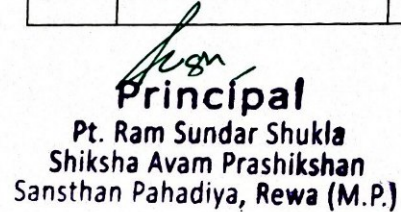 Principal
Pt. Ram Sundar Shukla
Shiksha Avam Prashikshan
Sansthan Pahadiya, Rewa (M.P.)